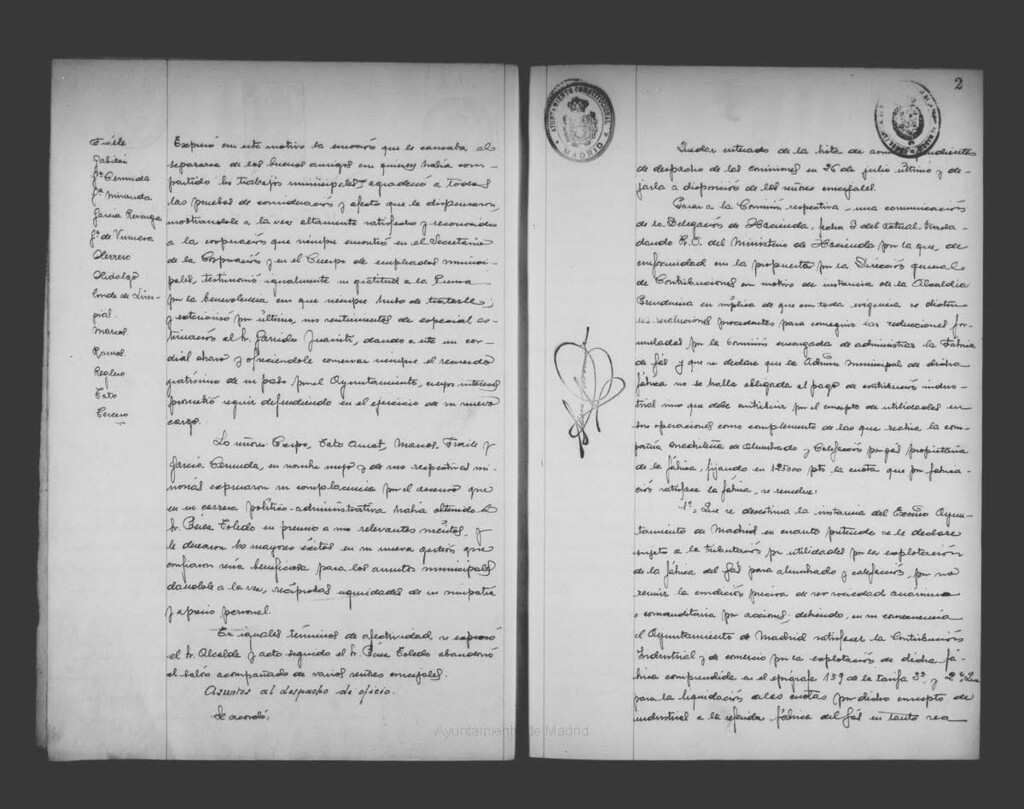 Fraile
Galilea
Ga Cernuda
Ga Miranda
García Revenga
Ga de Vinuesa
Herrero
Hidalgo
Conde de Lim-
pias.
Marcos
Ramos.
Regúlez
Tato
Tercero
Expresó con este motivo la emoción que le causaba el
separarse de los buenos amigos con quienes había com-
partido los trabajos municipales y agradeció a todos
las pruebas de consideración y afecto que le dispensaron,
mostrándole a la vez altamente satisfecho y reconocido
a la cooperación que siempre encontró en el Secretario
de la Corporación y en el Cuerpo de empleados munici-
pales, testimonió igualmente su gratitud a la Prensa
por la benevolencia con que siempre hubo de tratarle;
y exteriorizó por último sus sentimientos de especial es-
timación al Sr. Garrido Juaristi, dando a este un cor-
dial abrazo y ofreciéndole conservar siempre el recuerdo
gratísimo de su paso por el Ayuntamiento, cuyos intereses
prometió seguir defendiendo en el ejercicio de su nuevo
cargo.
Los señores Crespo, Tato Amat, Marcos, Fraile y
García Cernuda, en nombre suyo y de sus respectivas mi-
norías expresaron su complacencia por el ascenso que
en su carrera político-administrativa había obtenido el
Sr. Báez Toledo en premio a sus relevantes méritos, y
le desearon los mayores éxitos en su nueva gestión que
confiaron sería beneficiosa para los asuntos municipales
dándole a la vez, recíprocas seguridades de su simpatía
y aprecio personal.
En iguales términos de afectividad se expresó
el Sr. Alcalde y acto seguido el Sr. Báez Toledo abandonó
el salón acompañado de varios señores concejales.
Asuntos al despacho de oficio.
Se acordó:
AYUNTAMIENTO CONSTITUCIONAL
MADRID
2
Quedar enterado de la lista de asuntos pendientes
de despacho de las comisiones en 26 de julio último y de-
jarla a disposición de los señores concejales.
Pasar a la Comisión respectiva una comunicación
de la Delegación de Hacienda, fecha 3 del actual trasla-
dando R.O. del Ministerio de Hacienda por la que, de
conformidad con la propuesta por la Dirección general
de Contribuciones con motivo de instancia de la Alcaldía
Presidencia en súplica de que con toda urgencia se dicten
las resoluciones procedentes para conseguir las reducciones for-
muladas por la Comisión encargada de administrar la Fábrica
de Gas y que se declare que la Admon Municipal de dicha
fábrica no se halla obligada al pago de contribución indus-
trial sino que debe contribuir por el concepto de utilidades en
sus operaciones como complemento de las que realiza la com-
pañía Madrileña de Alumbrado y Calefacción por gas propietaria
de la fábrica, fijando en 125000 pts la cuota que por fabrica-
ción satisface la fábrica, se resuelve:
1º. Que se desestima la instancia del Excmo Ayun-
tamiento de Madrid en cuanto pretende se le declare
sujeto a la tributación por utilidades por la explotación
de la fábrica del gas para alumbrado y calefacción, por no
reunir la condición precisa de ser sociedad anónima
o comanditaria por acciones, debiendo, en su consecuencia
el Ayuntamiento de Madrid satisfacer la Contribución
Industrial y de comercio por la explotación de dicha fá-
brica comprendida en el epígrafe 139 de la tarifa 3ª. y 2º Que
para la liquidación de las cuotas por dicho concepto de
industrial a la referida fábrica del Gas en tanto sea
Ayuntamiento de Madrid